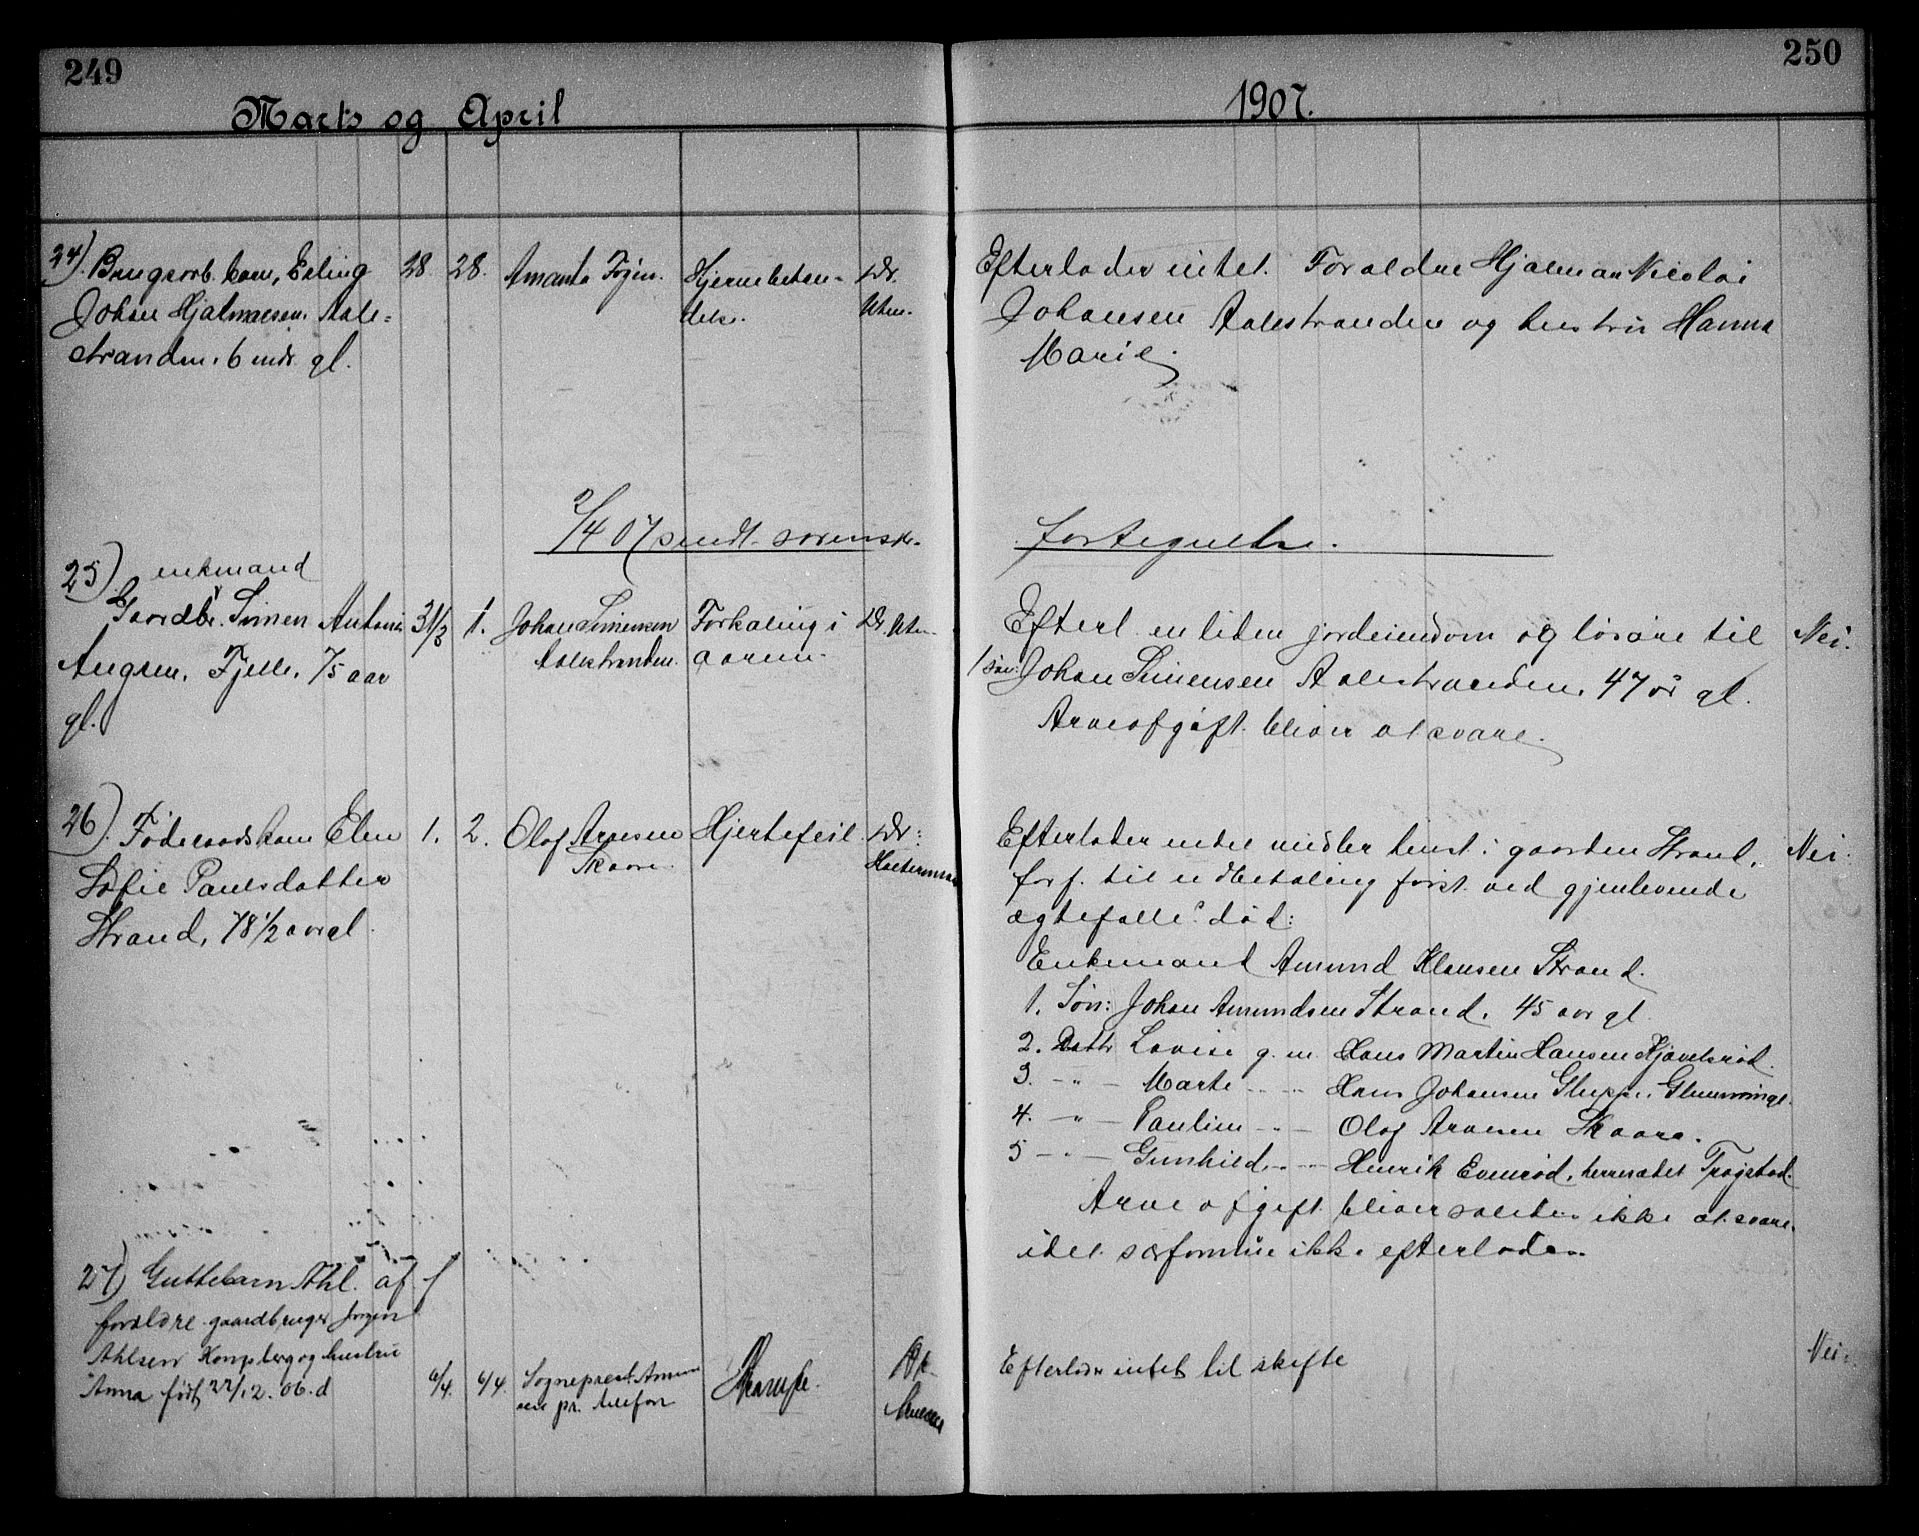 249
250
Marts og April
1907.
24) Brugsarb. barn, Erling
Johan Hjalmarsen, Aale=
stranden. 6 mdr gl.
28 28.
Amanta
Hjernebetæn=
delse.
Dr.
Efterlader intet. Forældre Hjalmar Nicolai
Johansen Aalestranden og hustru Hanna
Marie.
2/4 07 sendt sorensk.
fortegnelse.
25) enkemand
Gaardbr. Simen Anton
Fjelle, 75 aar
gl.
31/3 1.
Johan Simensen
Aalestranden.
Forkalkning i
aarene.
Dr.
Efterl. en liten jordeiendom og løsøre til
1 søn: Johan Simensen Aalestranden, 47 år gl.
Arveafgift bliver at svare.
Nei.
26) Føderaadskone Elen
Sofie Paulsdatter
Strand, 78 1/2 aar gl.
1. 2.
Olaf Arnesen
Skaare.
Hjertefeil.
Dr:
Efterlader endel midler hvist i gaarden Strand,
forf. til udbetaling først ved gjenlevende
ægtefælles død:
Nei.
Enkemand Amund Klausen Strand.
1. Søn: Johan Amundsen Strand, 45 aar gl.
2. Dattr Lovise g. m. Hans Martin Hansen
3. -"- Marte -"- Hans Johansen
4. -"- Pauline -"- Olaf Arnesen Skaare.
5 -"- Gunhild -"- Henrik herredet Trøgstad.
Arveafgift bliver saaledes ikke at svare,
idet særformue ikke efterlades.
27) Guttebarn Ahl. af
forældre gaardbruger Jørgen
Ahlsen Kongsberg og hustru
Anna født 22/12. 06. d
6/4. 6/4.
Sogneprest
pr. telefon
Krampe.
Dr.
Efterlader intet til skifte
Nei.